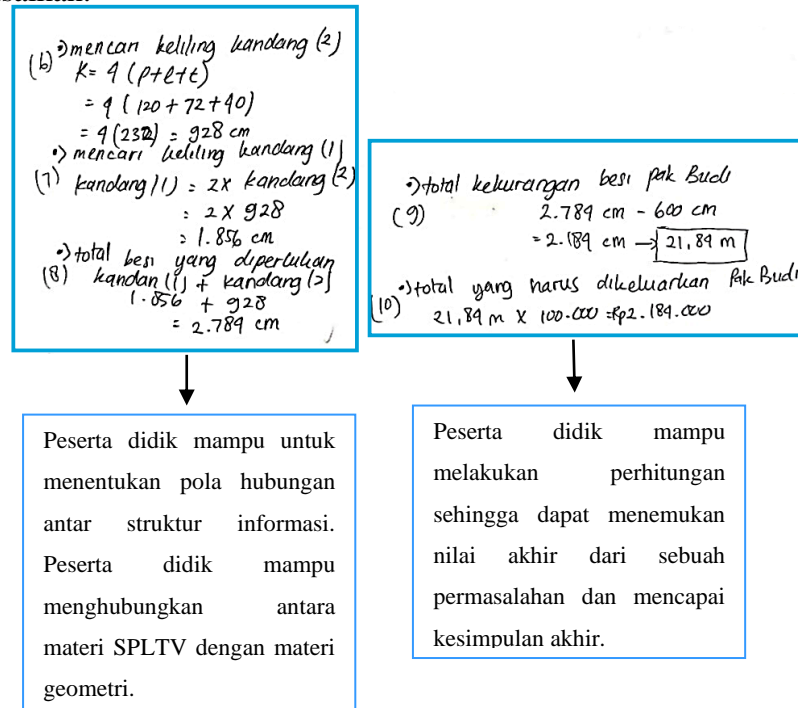 •) mencari keliling kandang (2)
(6) K= 4 (p+l+t)
= 4 (120 + 72 + 40)
= 4 (232) = 928 cm
•) mencari keliling kandang (1)
(7) kandang (1) = 2x kandang (2)
= 2 x 928
= 1.856 cm
•) total besi yang diperlukan
(8) kandan (1) + kandang (2)
1.856 + 928
= 2.784 cm
•) total kekurangan besi pak Budi
(9) 2.784 cm - 600 cm
= 2.184 cm → 21,84 m
•) total yang harus dikeluarkan Pak Budi
(10) 21,84 m x 100.000 = Rp2.184.000
Peserta didik mampu untuk
menentukan pola hubungan
antar struktur informasi.
Peserta didik mampu
menghubungkan antara
materi SPLTV dengan materi
geometri.
Peserta didik mampu
melakukan perhitungan
sehingga dapat menemukan
nilai akhir dari sebuah
permasalahan dan mencapai
kesimpulan akhir.